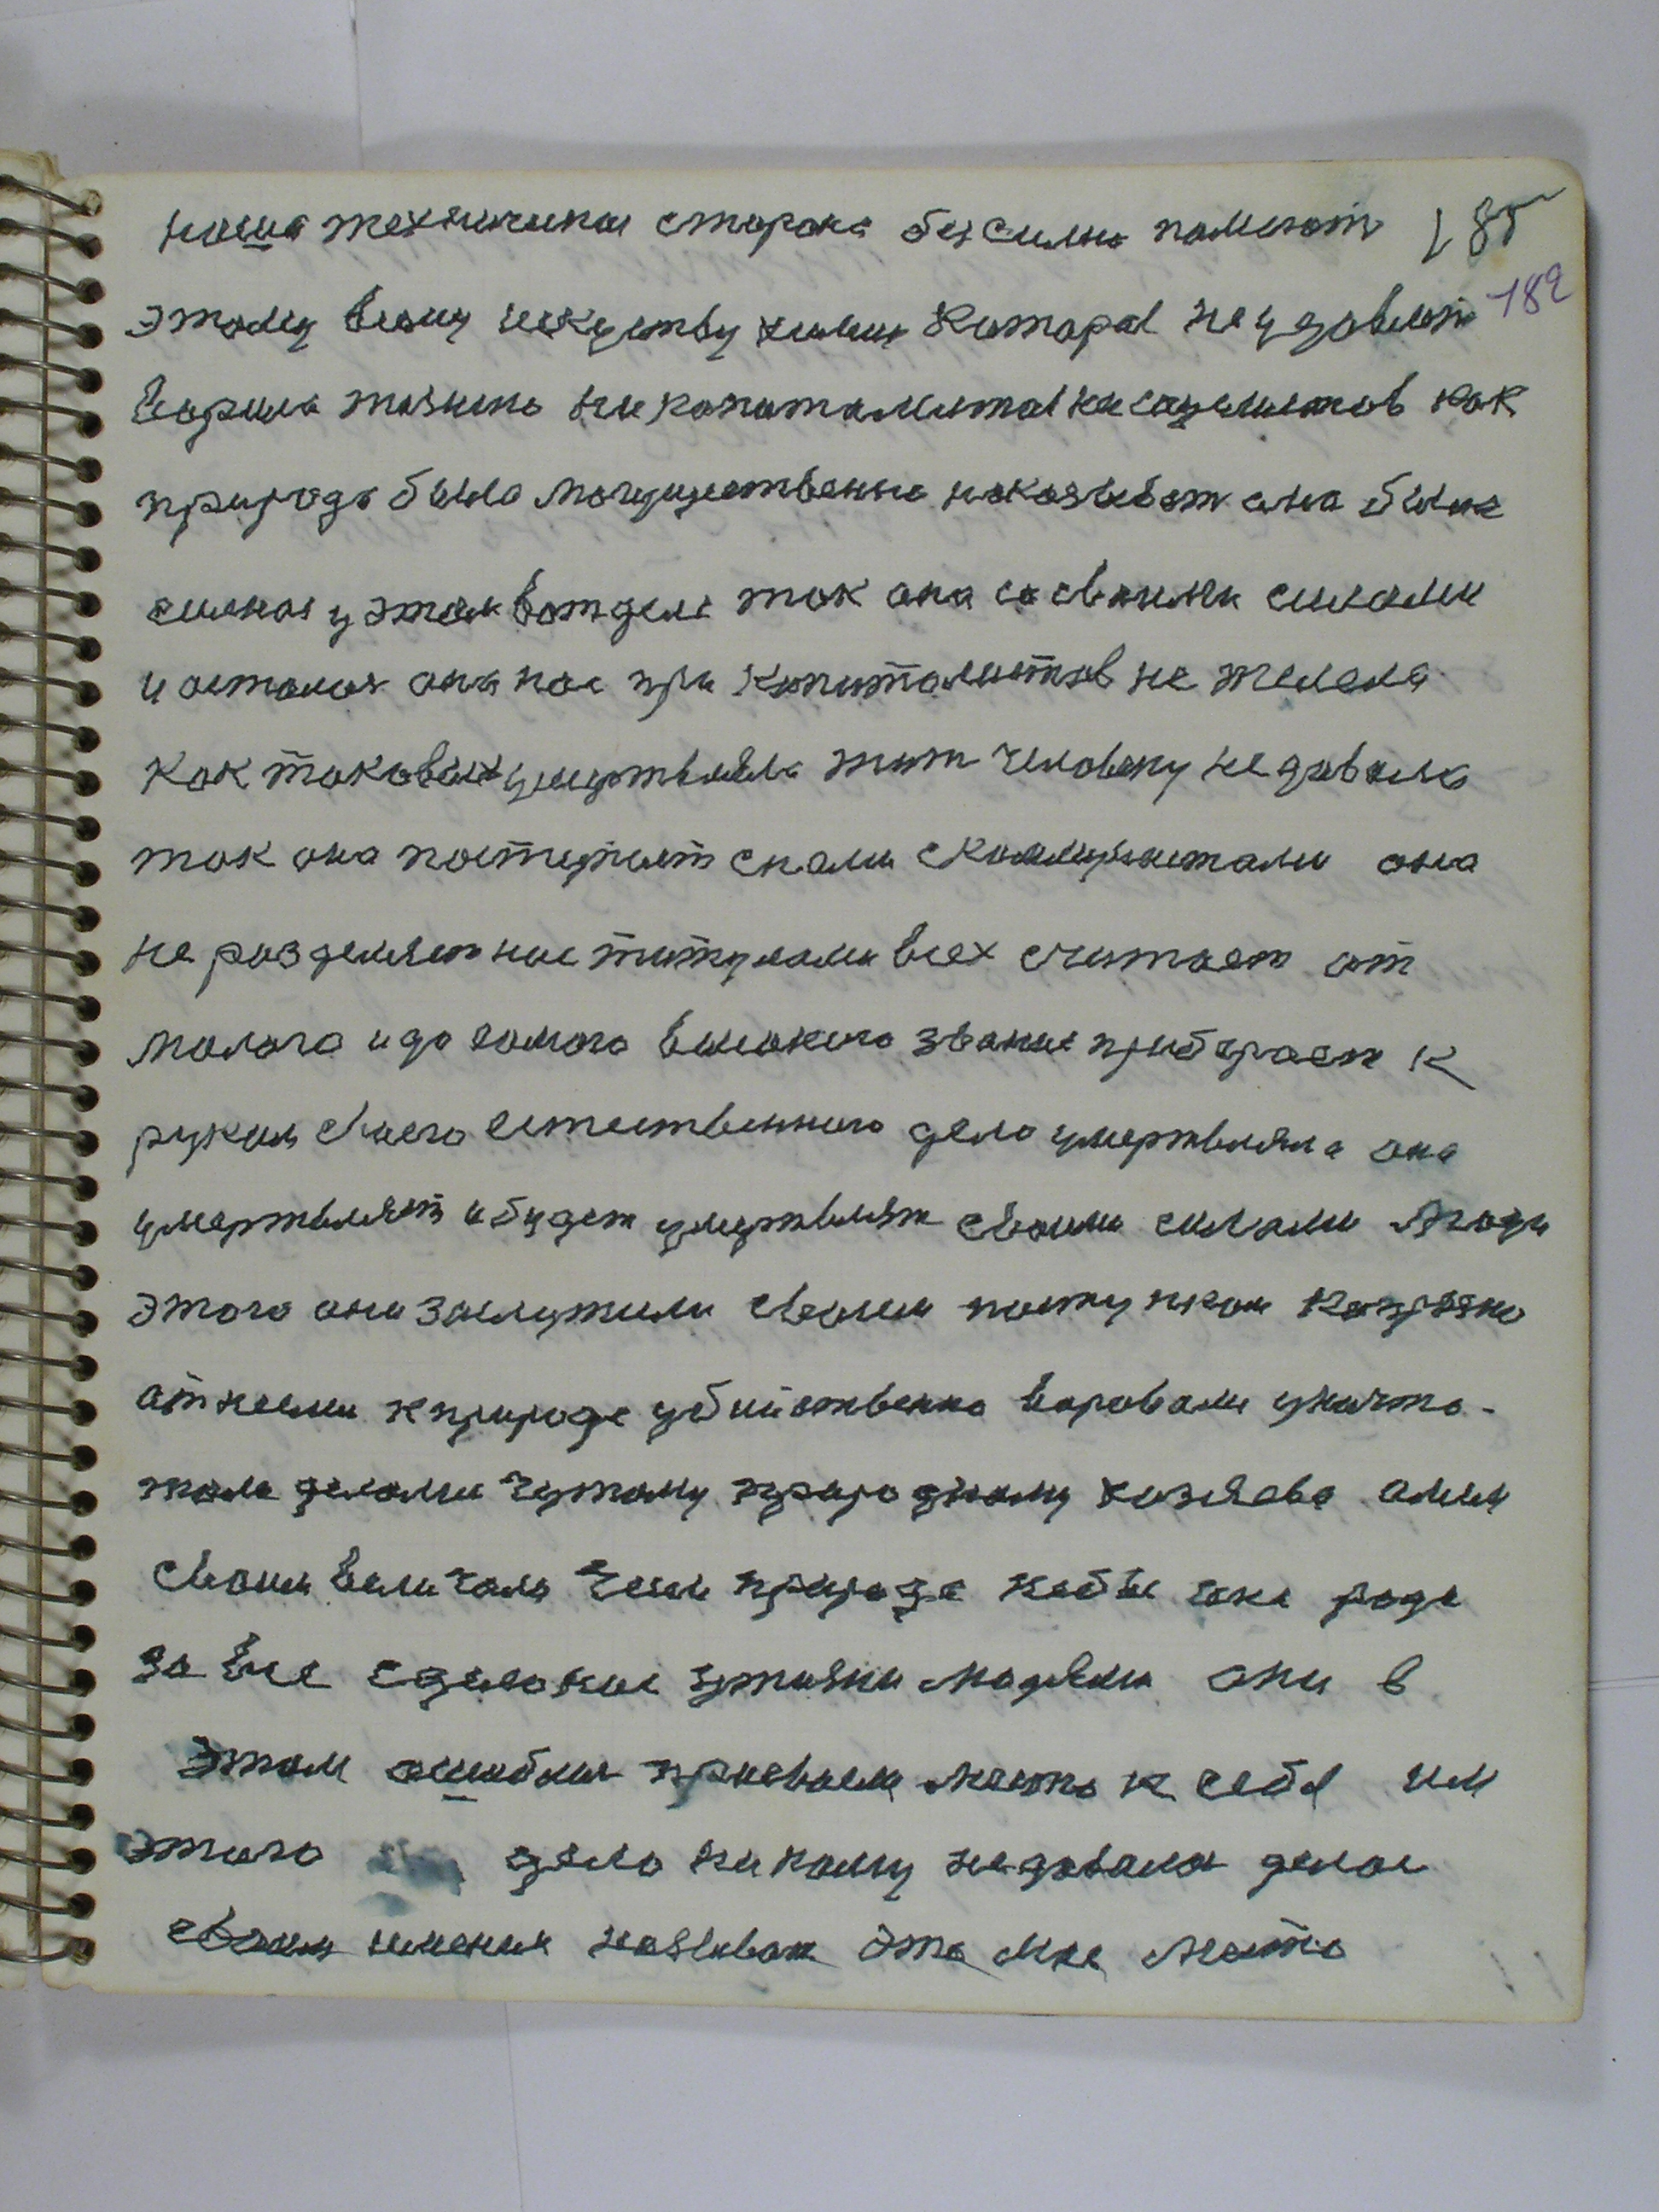 наша техничиная сторона безсильна помигат 185
этому всему искуству химии которая не удовлет 189
варила жизнию ни капиталистов ни сацелистов как
природа была могущественна наказывает она была
сильная у этом вот деле так она со своими силами
и осталась она нас при капиталистов не жалела
как таковых умертвляла жит человеку не давала
так она поступает с нами скаммунистами она
не разделяет нас титулами всех считает от
малого и до самого высокого звание прибирает к
рукам своего естественного дело умертвляла она
умертвляет и будет умертвлят своими силами люди
этого они заслужили своим поступком
к природе убийственно варавали уничто-
жали делами чужому природному хозяева
своим величали чем природе небыла она рада
за все сделаное людями они в
этом ошиблись присвоили место к себе им
этого дело никому не давалось делае
своим имения называт это мое место